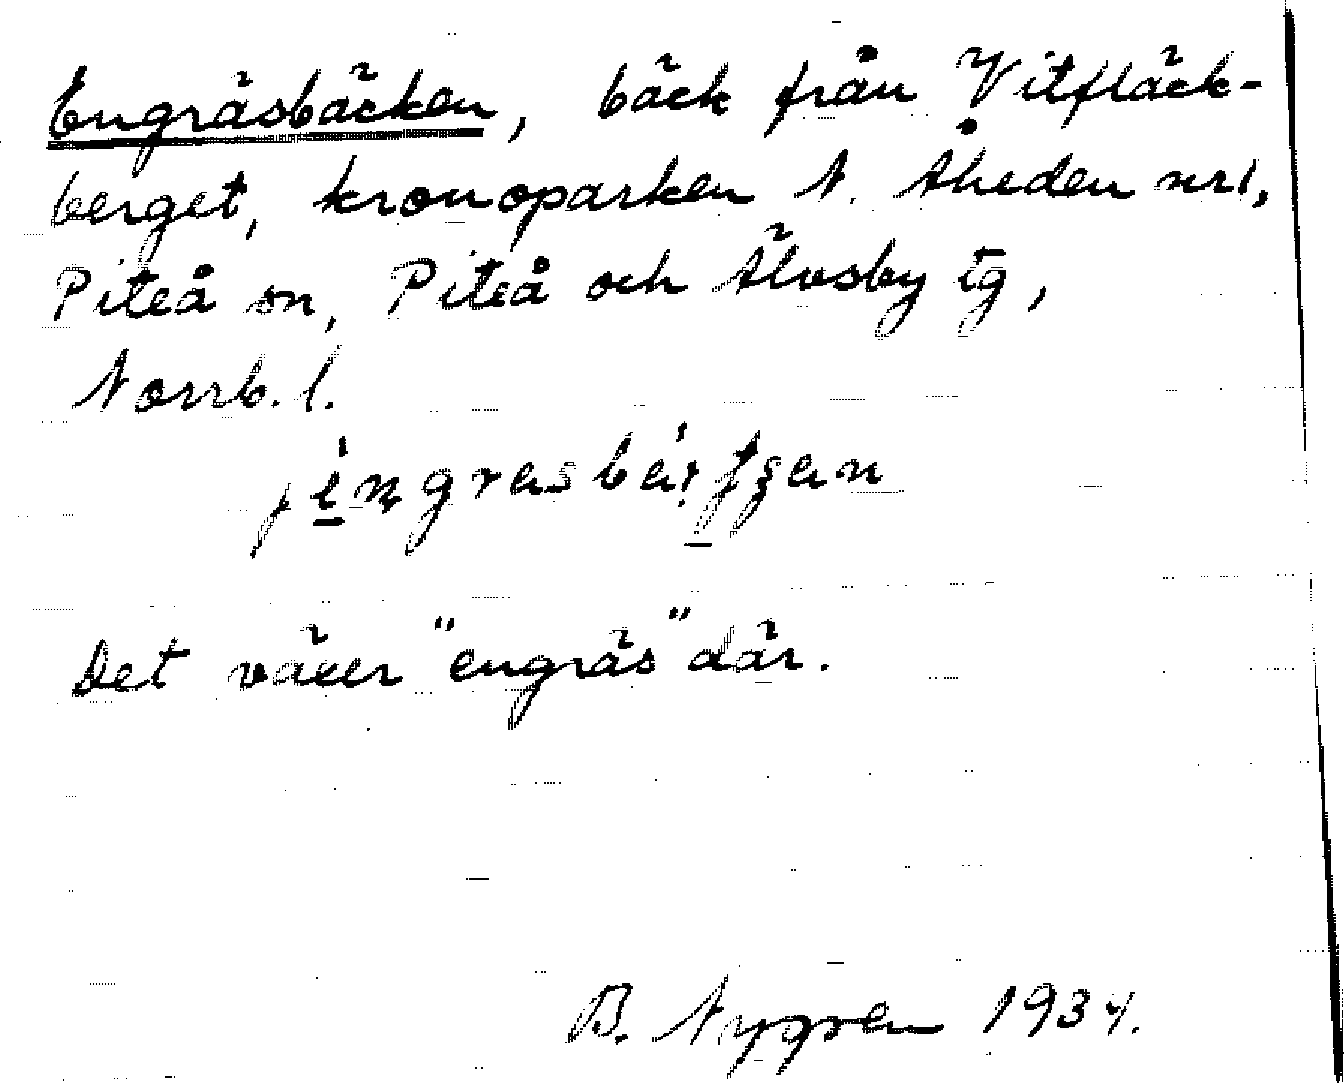 Engräsbäcken, bäck från Vitfläck-
berget, kronoparken N. Åheden nr 1,
Piteå sn, Piteå och Älvsby tg,
Norrb. l.
Det växer "engräs" där.
B. Nygren 1934.